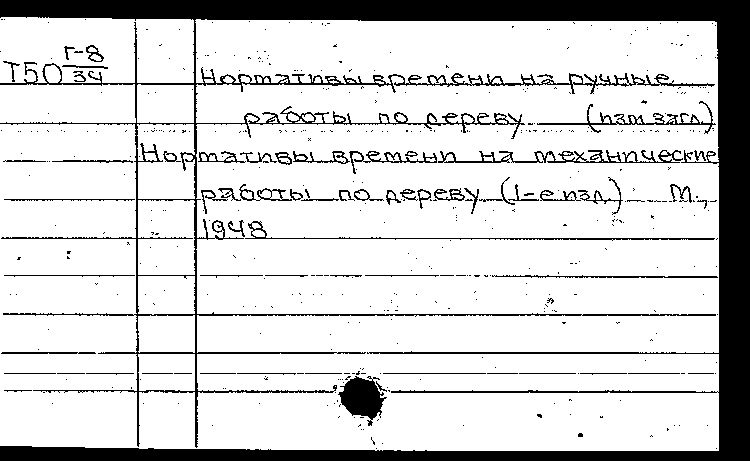 Т50 Г-8
34
Нормативы времени на ручные
работы по дереву (пям загл.)
Нормативы времени на механические
работы по дереву (1-е изд.) М.,
1948